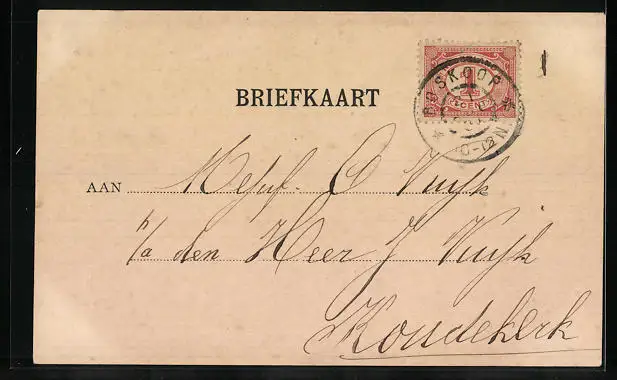 BRIEFKAART
BOSKOOP
10-12 N
1
CENT
AAN Mejuf. C Vuijk
p/a den Heer J Vuijk
Koudekerk